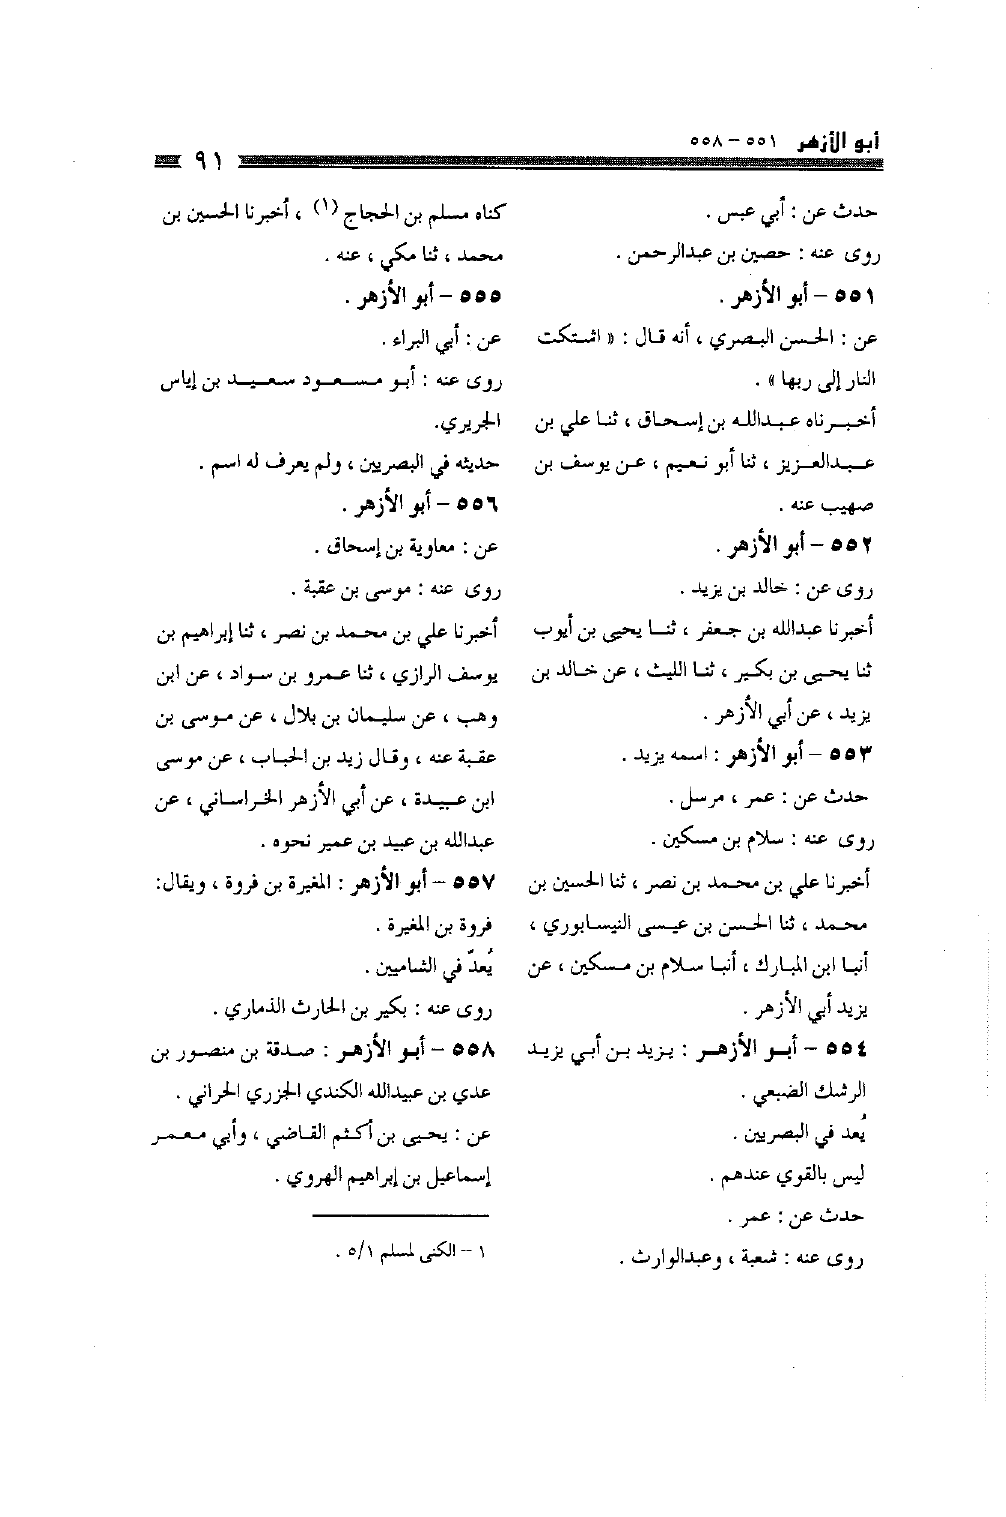 أبو الأزهر ٥٥١ – ٥٥٨
٩١
حدث عن : أبي عبس .
روى عنه : حصين بن عبدالرحمن .
٥٥١ – أبو الأزهر .
عن : الحسن البصري ، أنه قال : « اشتكت
النار إلى ربها » .
أخبرناه عبدالله بن إسحاق ، ثنا علي بن
عبدالعزيز ، ثنا أبو نعيم ، عن يوسف بن
صهيب عنه .
٥٥٢ – أبو الأزهر .
روى عن : خالد بن يزيد .
أخبرنا عبدالله بن جعفر ، ثنا يحيى بن أيوب
ثنا يحيى بن بكير ، ثنا الليث ، عن خالد بن
يزيد ، عن أبي الأزهر .
٥٥٣ – أبو الأزهر : اسمه يزيد .
حدث عن : عمر ، مرسل .
روى عنه : سلام بن مسكين .
أخبرنا علي بن محمد بن نصر ، ثنا الحسين بن
محمد ، ثنا الحسن بن عيسى النيسابوري ،
أنبا ابن المبارك ، أنبا سلام بن مسكين ، عن
يزيد أبي الأزهر .
٥٥٤ – أبو الأزهر : يزيد بن أبي يزيد
الرشك الضبعي .
يُعد في البصريين .
ليس بالقوي عندهم .
حدث عن : عمر .
روى عنه : شعبة ، وعبدالوارث .
كناه مسلم بن الحجاج (١) ، أخبرنا الحسين بن
محمد ، ثنا مكي ، عنه .
٥٥٥ – أبو الأزهر .
عن : أبي البراء .
روى عنه : أبو مسعود سعيد بن إياس
الجريري.
حديثه في البصريين ، ولم يعرف له اسم .
٥٥٦ – أبو الأزهر .
عن : معاوية بن إسحاق .
روى عنه : موسى بن عقبة .
أخبرنا علي بن محمد بن نصر ، ثنا إبراهيم بن
يوسف الرازي ، ثنا عمرو بن سواد ، عن ابن
وهب ، عن سليمان بن بلال ، عن موسى بن
عقبة عنه ، وقال زيد بن الحباب ، عن موسى
ابن عبيدة ، عن أبي الأزهر الخراساني ، عن
عبدالله بن عبيد بن عمير نحوه .
٥٥٧ – أبو الأزهر : المغيرة بن فروة ، ويقال:
فروة بن المغيرة .
يُعدّ في الشاميين .
روى عنه : بكير بن الحارث الذماري .
٥٥٨ – أبو الأزهر : صدقة بن منصور بن
عدي بن عبيدالله الكندي الجزري الحراني .
عن : يحيى بن أكثم القاضي ، وأبي معمر
إسماعيل بن إبراهيم الهروي .
١ – الكنى لمسلم ٥/١ .